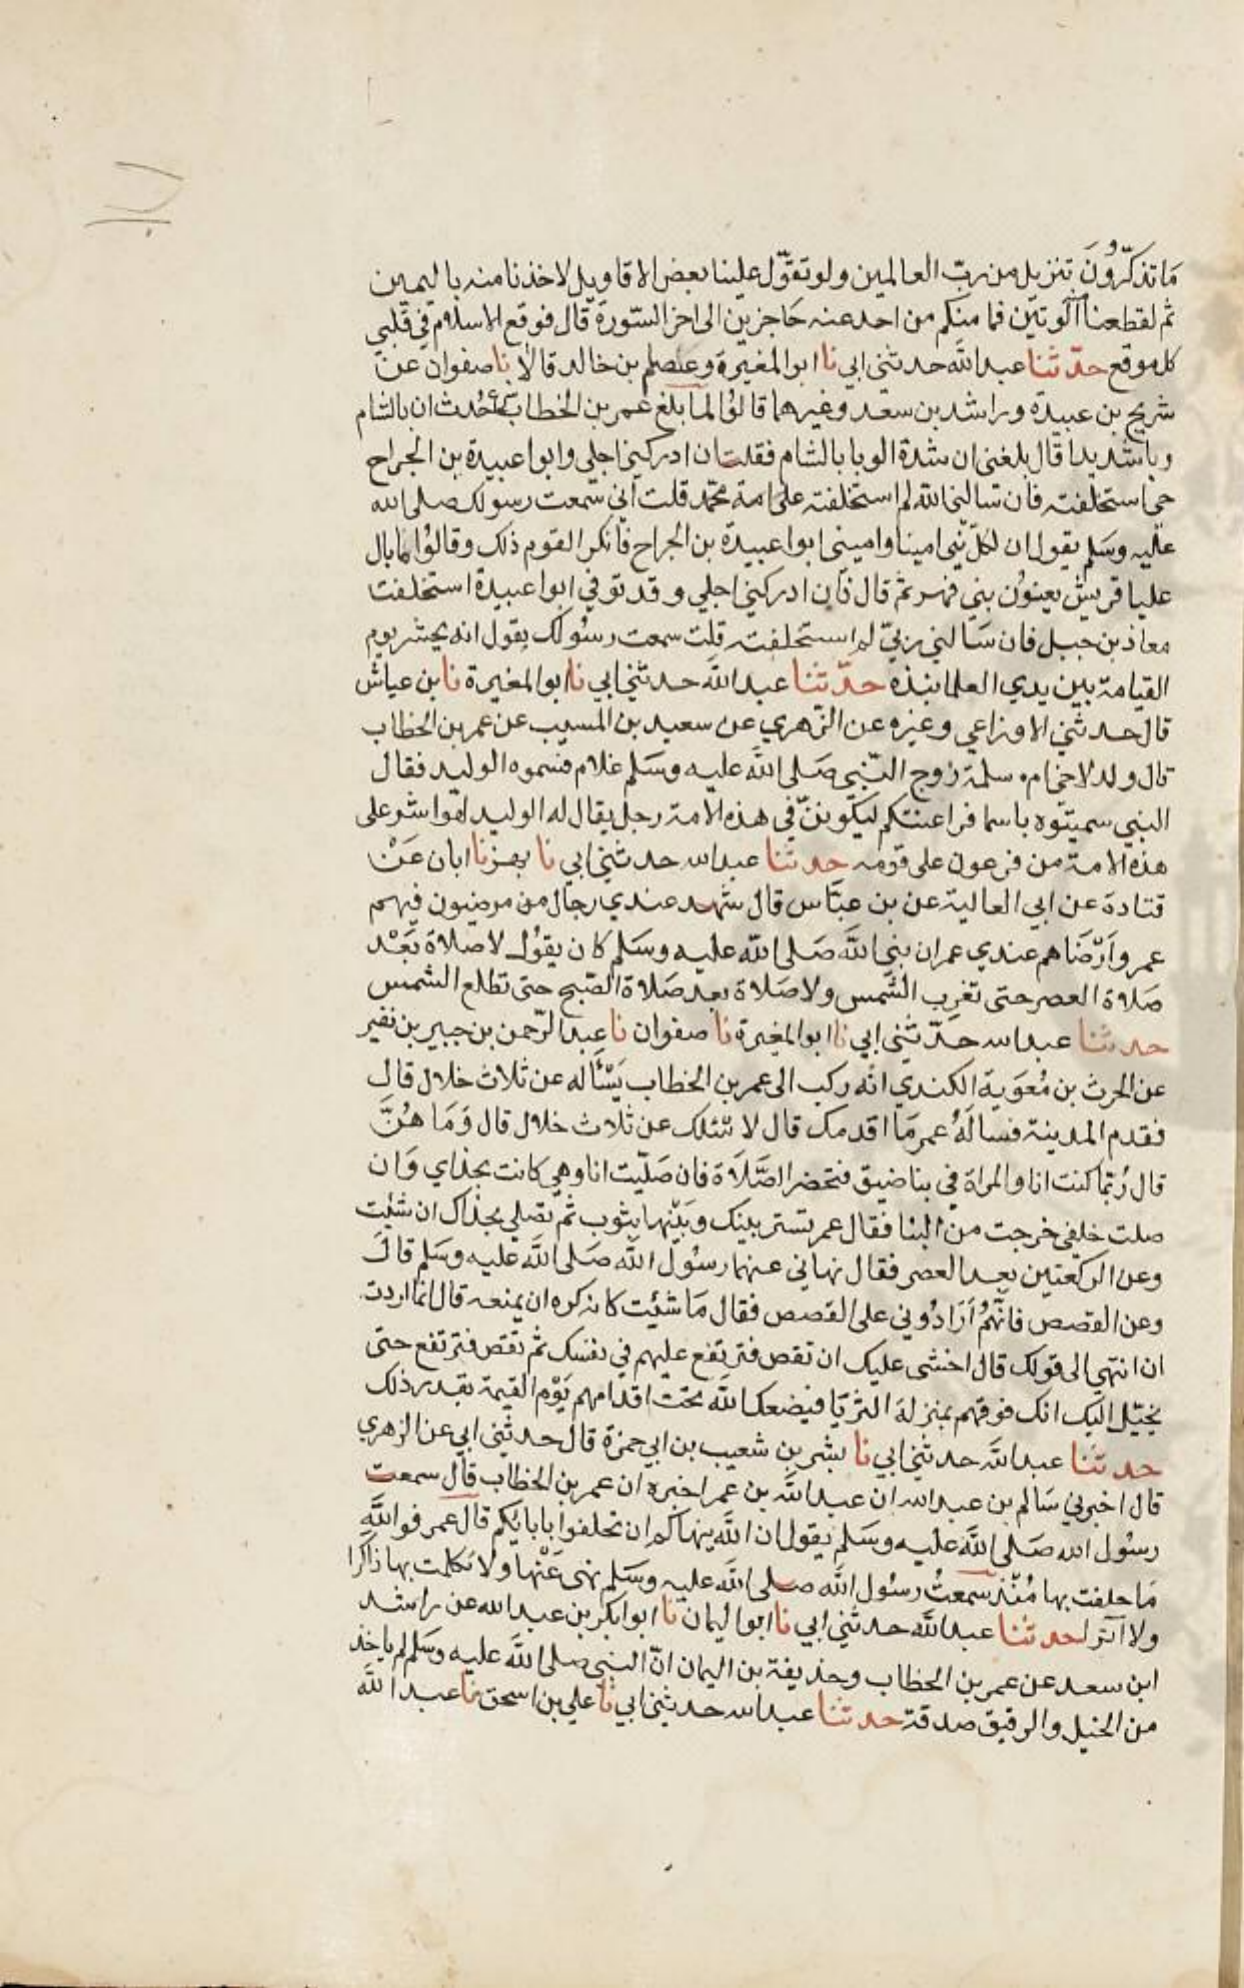 مَا تذكّرُونَ تنزيل من ربّ العالمين ولو تقوّل علينا بعض الاقاويل لاخذنا منه باليمين
ثم لقطعنا منه الوتين فما منكم من احد عنه حَاجزين الى اخر السّورة قال فوقع الاسلام في قلبي
كل موقع حدّثنا عبد الله حدثنى ابي نا ابو المغيرة وعصام بن خالد قالا نا صفوان عن
شريح بن عبيدة وراشد بن سعد وغيرهما قالوُا لما بلغ عمر بن الخطاب سرغ حُدث ان بالشام
وباشديدا قال بلغنى ان شدة الوبا بالشام فقلت ان ادركني اجلي وابوا عبيدة بن الجراح
حى استخلفته فان سالنى الله لم استخلفته على امة محمّد قلت انى سمعت رسولك صلى الله
عليه وسَلم يقول ان لكلّ نبي امينا واميني ابوا عبيدة بن الجراح فانكر القوم ذلك وقالوُا مَا بال
عليا قريش يعنوُن بني فهر ثم قال فان ادركني اجلي وقد توفي ابوا عبيدة استخلفت
معاذ بن جبل فان سَالني ربيّ لم استخلفته قلت سمعت رسُولك يقول انه يحشر يوم
القيامة بين يدي العلما نبذه حدّثنا عبد الله حدثني ابي نا ابوا المغيرة نا بن عياش
قال حدثني الاوزاعي وغيره عن الزهري عن سعيد بن المسيب عن عمر بن الخطاب
قال ولد لاخي ام سلمة زوج النّبي صَلى الله عليه وسَلم غلام فسموه الوليد فقال
النبي سميتوه باسما فراعنتكم ليكونن في هذه الامة رجل يقال له الوليد لهو اشر على
هذه الامة من فرعون على قومه حدثنا عبد الله حدثني ابي نا بهز نا ابان عَنْ
قتادة عن ابي العالية عن بن عبّاس قال شهد عندي رجال من مرضيون فيهم
عمر وَارْضَاهم عندي عمر ان نبي الله صَلى الله عليه وسَلم كان يقوُل لا صلاة بَعْد
صَلاة العصر حتى تغرب الشمس ولا صَلاة بعد صَلاة الصّبح حتى تطلع الشمس
حدثنا عبد الله حدّثنى ابي نا ابوا المغيرة نا صفوان نا عبد الرّحمن بن جبير بن نفير
عن الحرث بن مُعوَية الكندي انه ركب الى عمر بن الخطاب يَسْأله عن ثلاث خلال قال
فقدم المدينة فساله عمر مَا اقدمك قال لا سئلك عن ثلاث خلال قال وَمَا هُنَّ
قال رُبّما كنت انا والمراة في بنا ضيق فتحضر الصَّلاَة فان صَليّت انا وهي كانت بحذاي وَان
صلت خلفى خرجت من البنا فقال عمر تستر بينك وَبيْنها بثوب ثم تصلي بحذاك ان شئت
وعن الركعتين بعد العصر فقال نهاني عنهما رسُول الله صَلى الله عليه وسَلم قال
وعن القصص فانهُّمُ اَرَادُوني على القصص فقال مَا شئت كانه كره ان يمنعه قال انما اردت
ان انتهي الى قولك قال اخشى عليك ان تقص فترتفع عليهم في نفسك ثم تقص فترتفع حتى
يخيّل اليك انك فوقهم بمنزلة الثريّا فيضعك الله تحت اقدامهم يَوْم القيمة بقدر ذلك
حدثنا عبد الله حدثني ابي نا بشر بن شعيب بن ابي حمزة قال حدثنى ابي عن الزهري
قال اخبرني سَالم بن عبد الله ان عبد الله بن عمر اخبره ان عمر بن الخطاب قال سمعت
رسُول الله صَلى الله عليه وسَلم يقول ان الله ينهاكم ان تحلفوا بابايكم قال عمر فو الله
مَا حلفت بها مُنْذ سمعتُ رسُول الله صلى الله عليه وسَلم نهى عَنْها ولا تكلمت بها ذاكرا
ولا آثرا حدثنا عبد الله حدثني ابي نا ابوا ليمان نا ابوا بكر بن عبد الله عن راشد
ابن سعد عن عمر بن الخطاب وحذيفة بن اليمان انّ النبي صلى الله عليه وسَلم لم ياخذ
من الخيل والرقيق صدقة حدثنا عبد الله حدثني ابي نا علي بن اسحق نا عبد الله